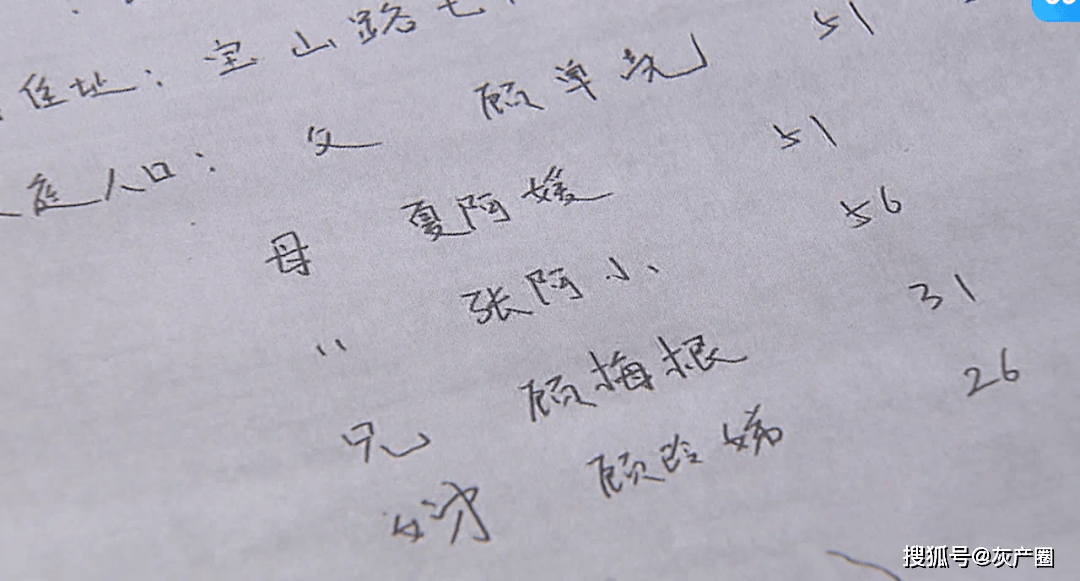 住址：宝山路七
庭人口：父 顾单 51
母 夏阿媛 51
〃 张阿小 56
兄 顾梅根 31
姊 顾玲娣 26
搜狐号@灰产圈